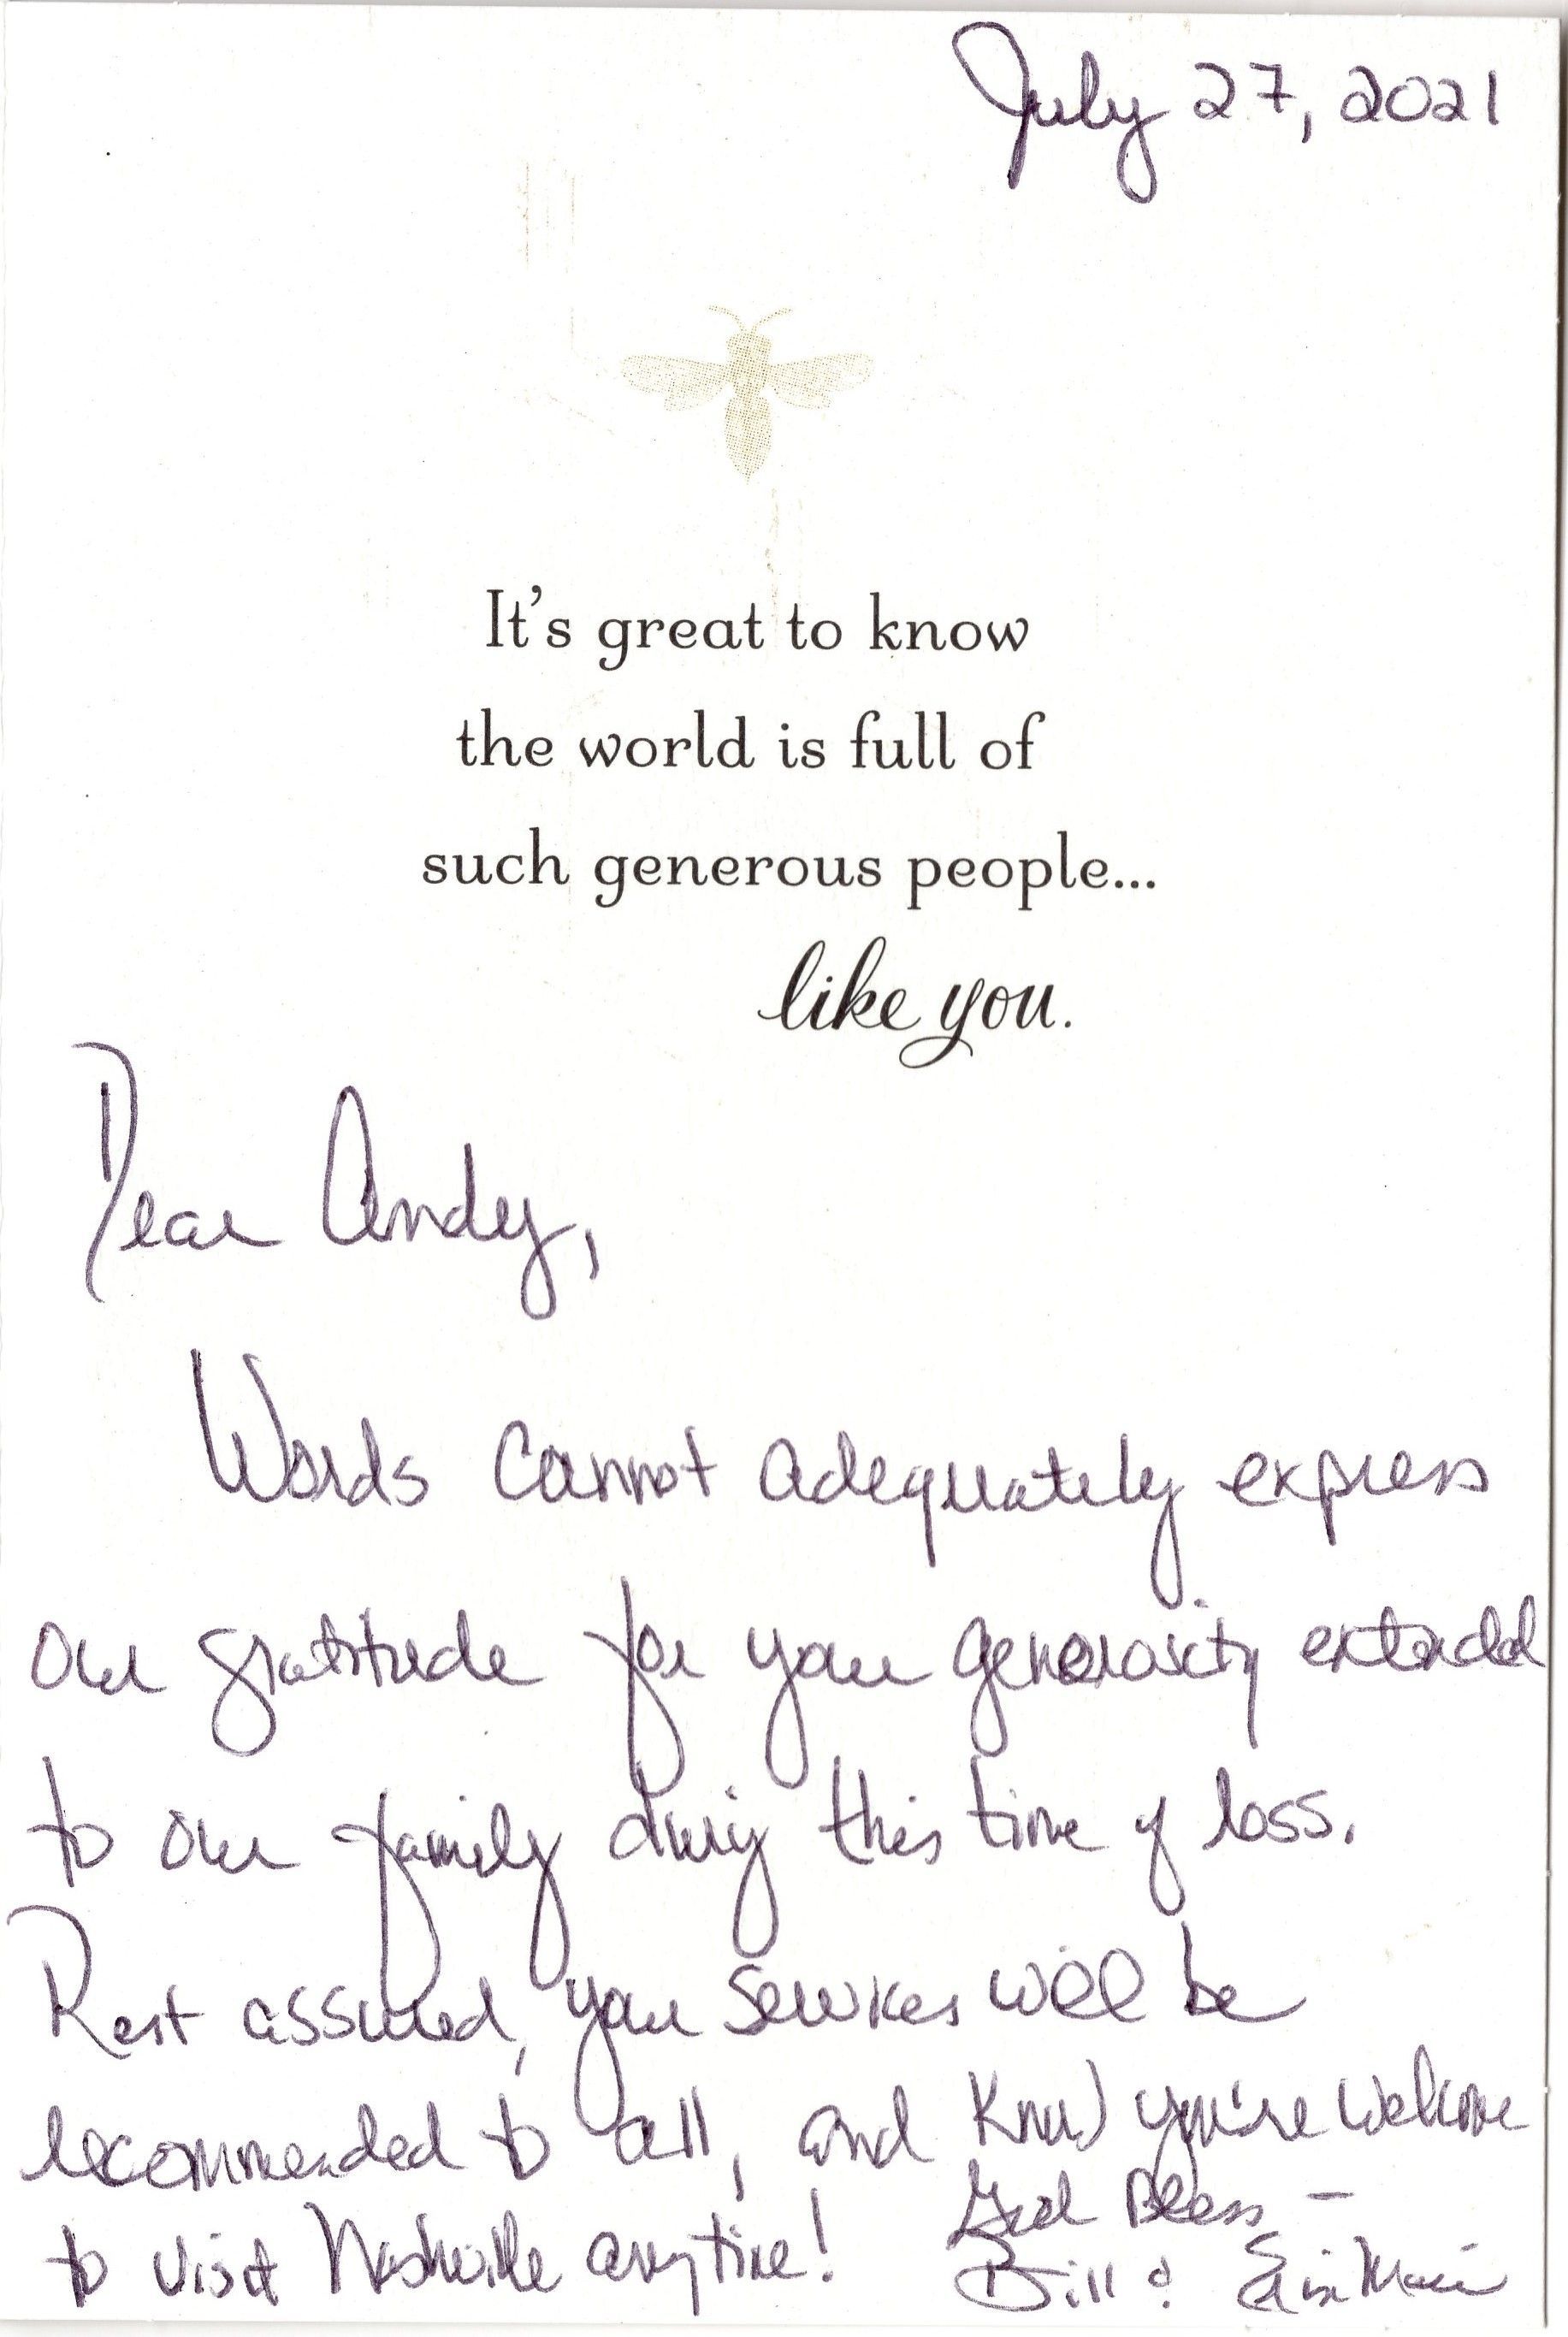 July 27, 2021
It's great to know
the world is full of
such generous people...
like you.
Dear Andy,
Words cannot adequately express
our gratitude for your generosity extended
to our family during this time of loss.
Rest assured, your services will be
recommended to all, and know you're welcome
to visit Nashville anytime!
God Bless –
Bill &